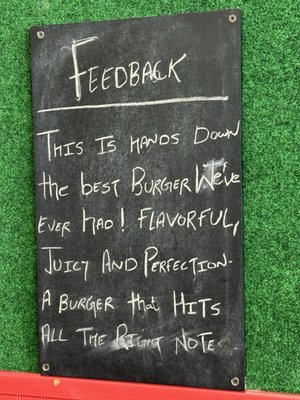 FEEDBACK
THIS IS HANDS DOWN
the best BURGER We've
EVER HAD! FLAVORFUL,
JUICY AND PERFECTION.
A BURGER that HITS
ALL THE RIGHT NOTES